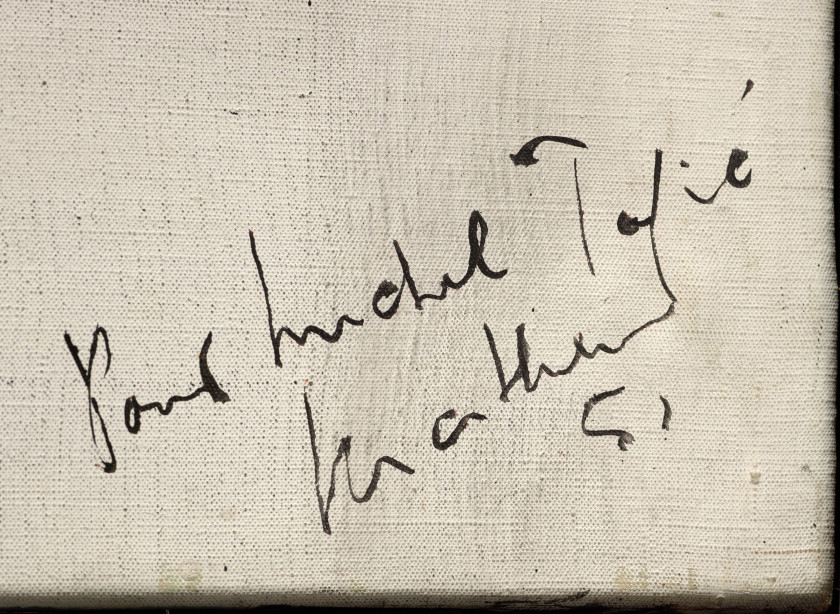 Pour Michel Tapié
Mathieu
51